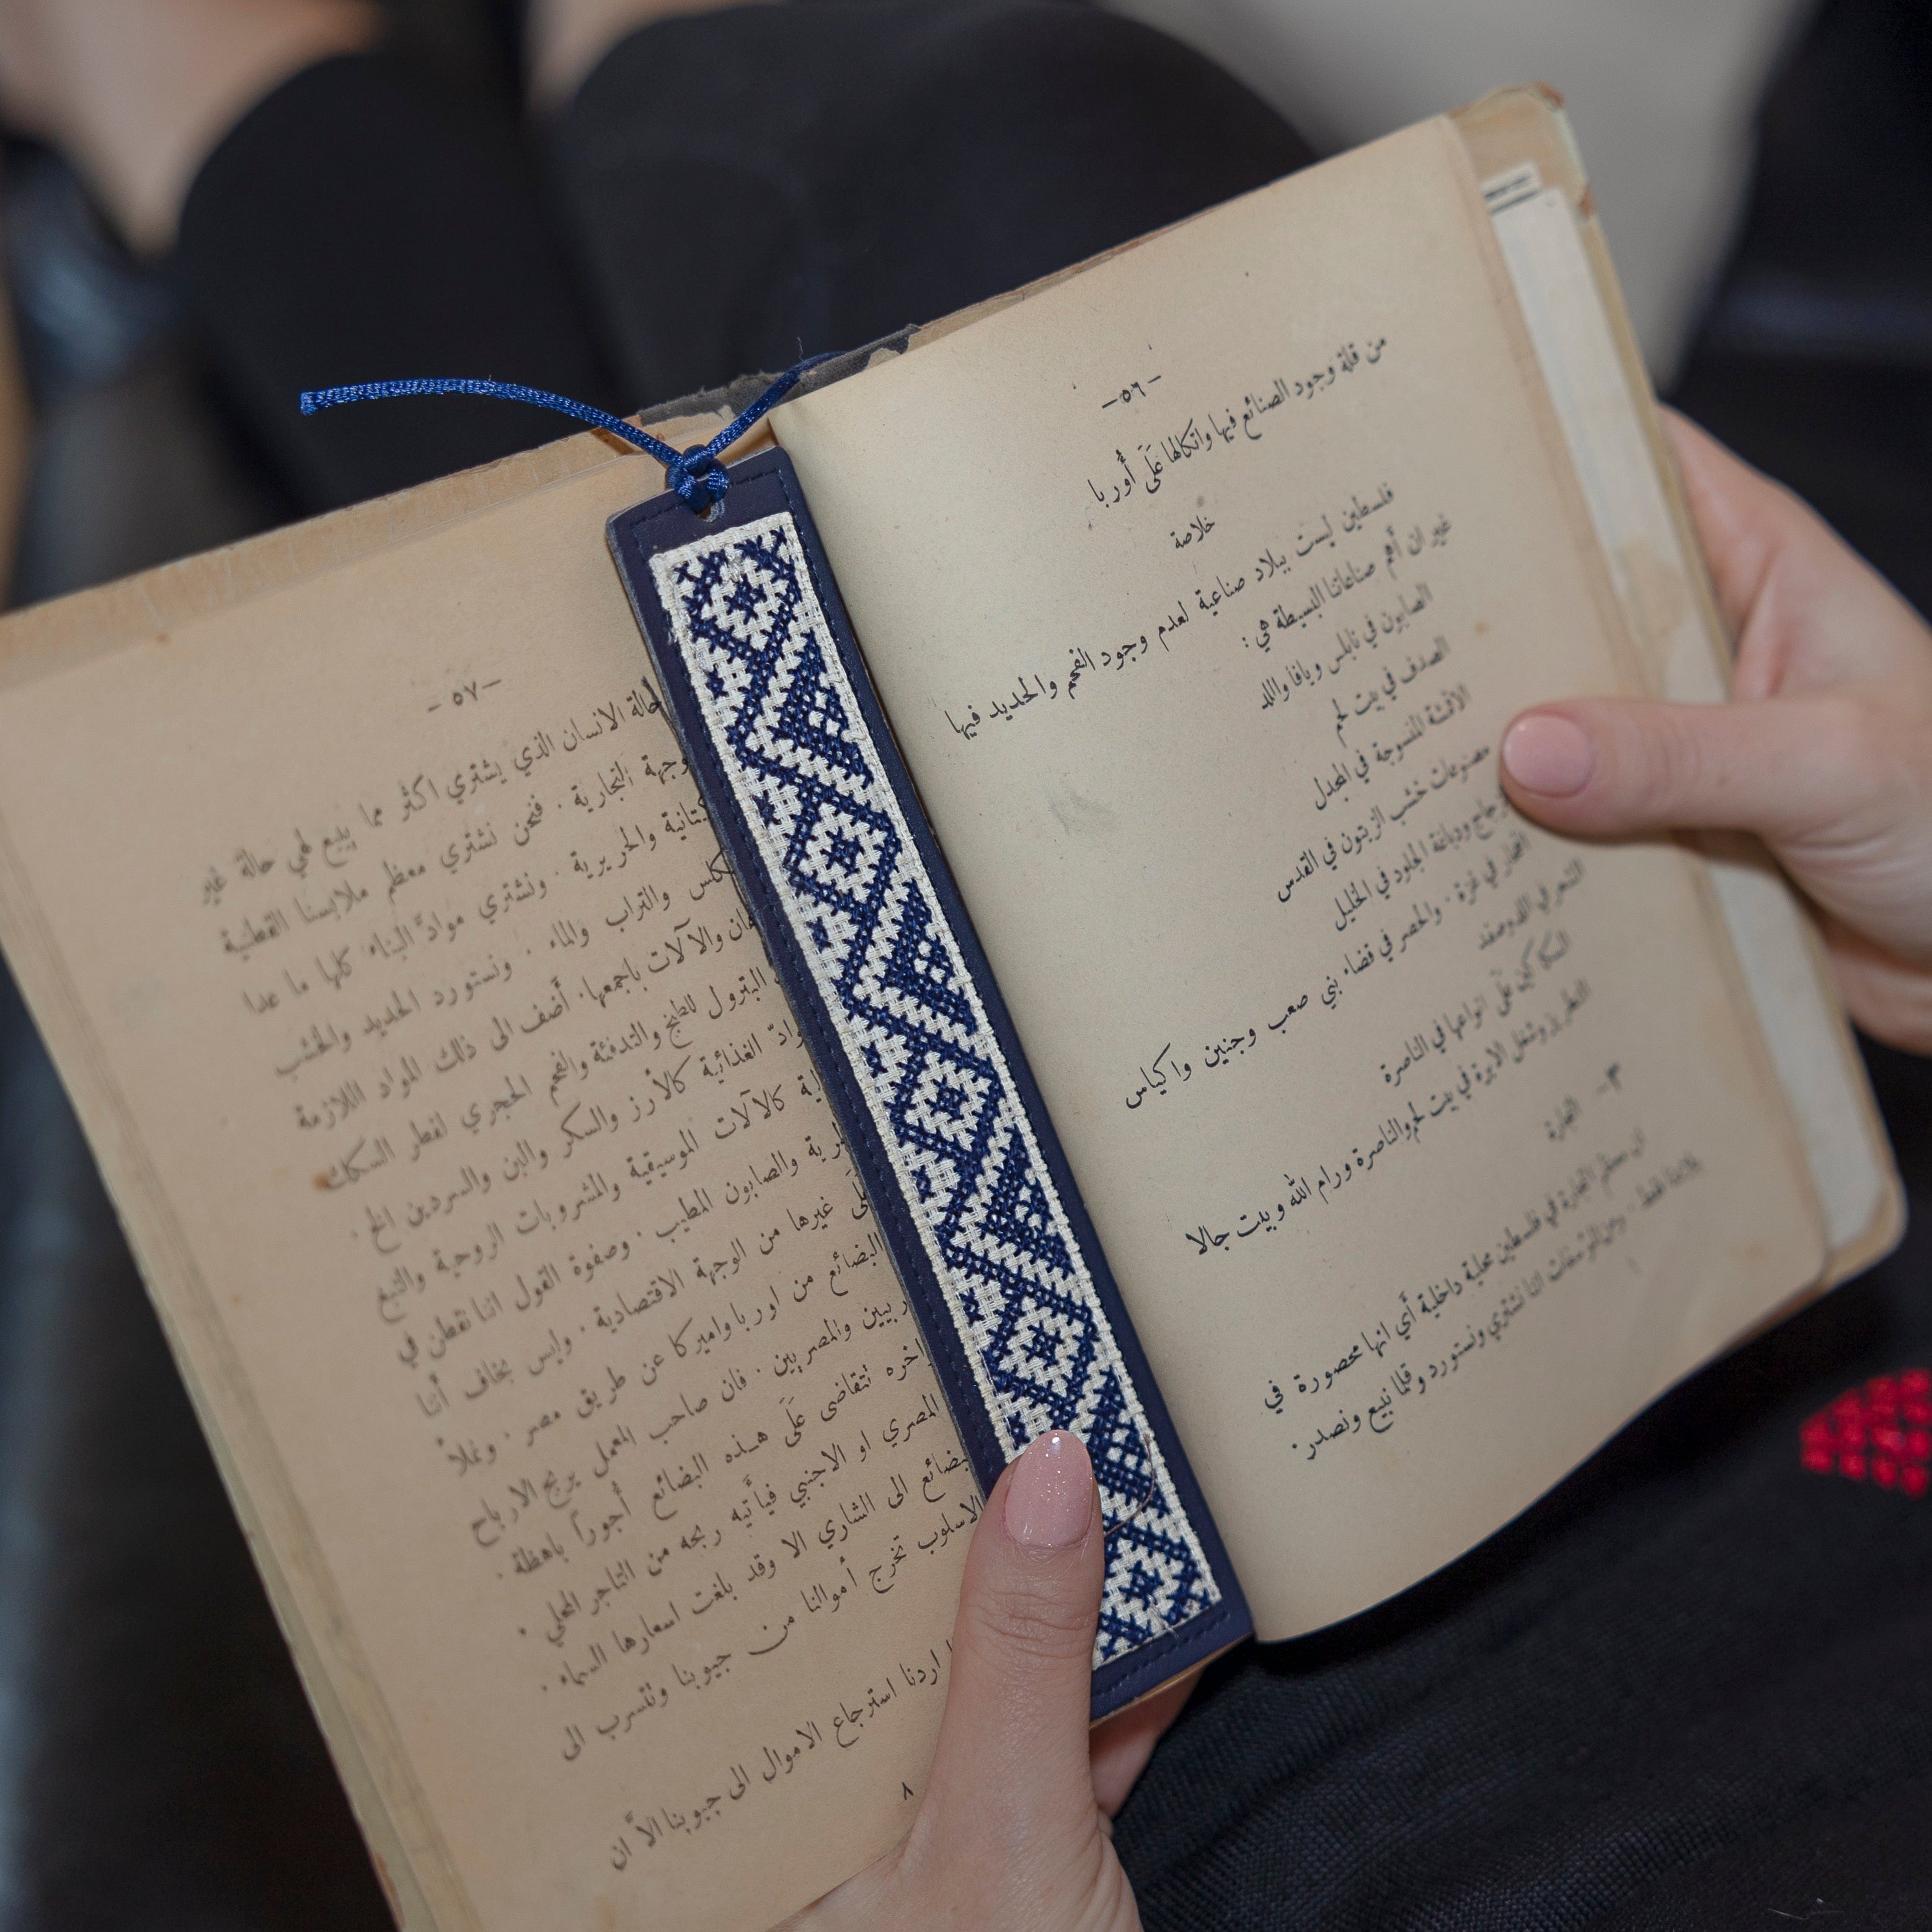 -٥٦-
من قلة وجود الصنائع فيها واتكالها عَلَى أُوربا
خلاصة
فلسطين ليست ببلاد صناعية لعدم وجود الفحم والحديد فيها
غير ان أهم صناعاتنا البسيطة هي :
الصابون في نابلس ويافا واللد
الصدف في بيت لحم
الاقمشة المنسوجة في المجدل
مصنوعات خشب الزيتون في القدس
الزجاج ودباغة الجلود في الخليل
الفخار في غزة . والحصر في قضاء بني صعب وجنين واكياس
الشعر في اللد وصفد
السكاكين عَلَى انواعها في الناصرة
التطريز وشغل الابرة في بيت لحم والناصرة ورام الله وبيت جالا
٣- التجارة
ان معظم التجارة في فلسطين محلية داخلية أي انها محصورة في
بلادنا فقط . ومن المؤسفات اننا نشتري ونستورد وقلما نبيع ونصدر .
-٥٧-
حالة الانسان الذي يشتري اكثر مما يبيع لهي حالة غير
وجهة التجارية . فنحن نشتري معظم ملابسنا القطنية
والحريرية . ونشتري موادّ البناء كلها ما عدا
والتراب والماء . ونستورد الحديد والخشب
والآلات باجمعها . أضف الى ذلك المواد اللازمة
البترول للطبخ والتدفئة والفحم الحجري لقطر السكك
الغذائية كالأرز والسكر والبن والسردين الخ .
كالآلات الموسيقية والمشروبات الروحية والتبغ
والصابون المطيب . وصفوة القول اننا نقطن في
غيرها من الوجهة الاقتصادية . وليس بخاف أننا
البضائع من اوربا واميركا عن طريق مصر . وعملاً
والمصريين . فان صاحب المعمل يربح الارباح
تتقاضى عَلَى هذه البضائع أجوراً باهظة .
المصري او الاجنبي فيأتيه ربحه من التاجر المحلي .
الى الشاري الا وقد بلغت اسعارها السماء .
الاسلوب تخرج أموالنا من جيوبنا وتتسرب الى
اردنا استرجاع الاموال الى جيوبنا الاَّ ان
٨